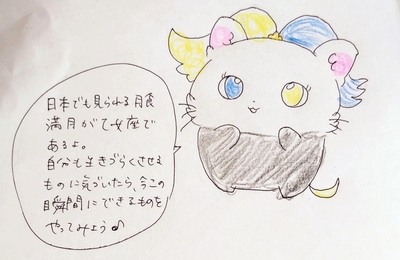 日本でも見られる月食
満月が乙女座で
あるよ。
自分も生きづらくさせる
ものに気づいたら、今この
瞬間にできるものを
やってみよう♪